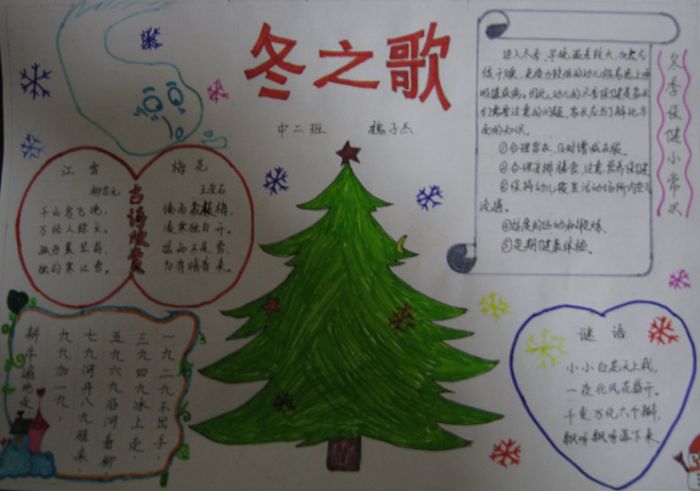 冬之歌
中二班
魏子杰
江雪
柳宗元
千山鸟飞绝，
万径人踪灭。
孤舟蓑笠翁，
独钓寒江雪。
梅花
王安石
墙角数枝梅，
凌寒独自开。
遥知不是雪，
为有暗香来。
古诗欣赏
冬季保健小常识
进入冬季，早晚温差较大，加
低干燥，免疫力较低的幼儿极易患上呼
吸道疾病。因此，幼儿的冬季保健是家长
们需要注意的问题，家长应当了解这方
面的知识。
①合理穿衣，及时增减衣服。
②合理安排膳食，注意营养保健
③保持幼儿园生活活动场所内空气
流通。
④适度的运动和锻炼。
⑤定期健康体检。
一九二九不出手，
三九四九冰上走，
五九六九沿河看柳，
七九河开八九雁来，
九九加一九，
耕牛遍地走
谜语
小小白花天上栽，
一夜北风花盛开。
千变万化六个瓣，
飘呀飘呀落下来